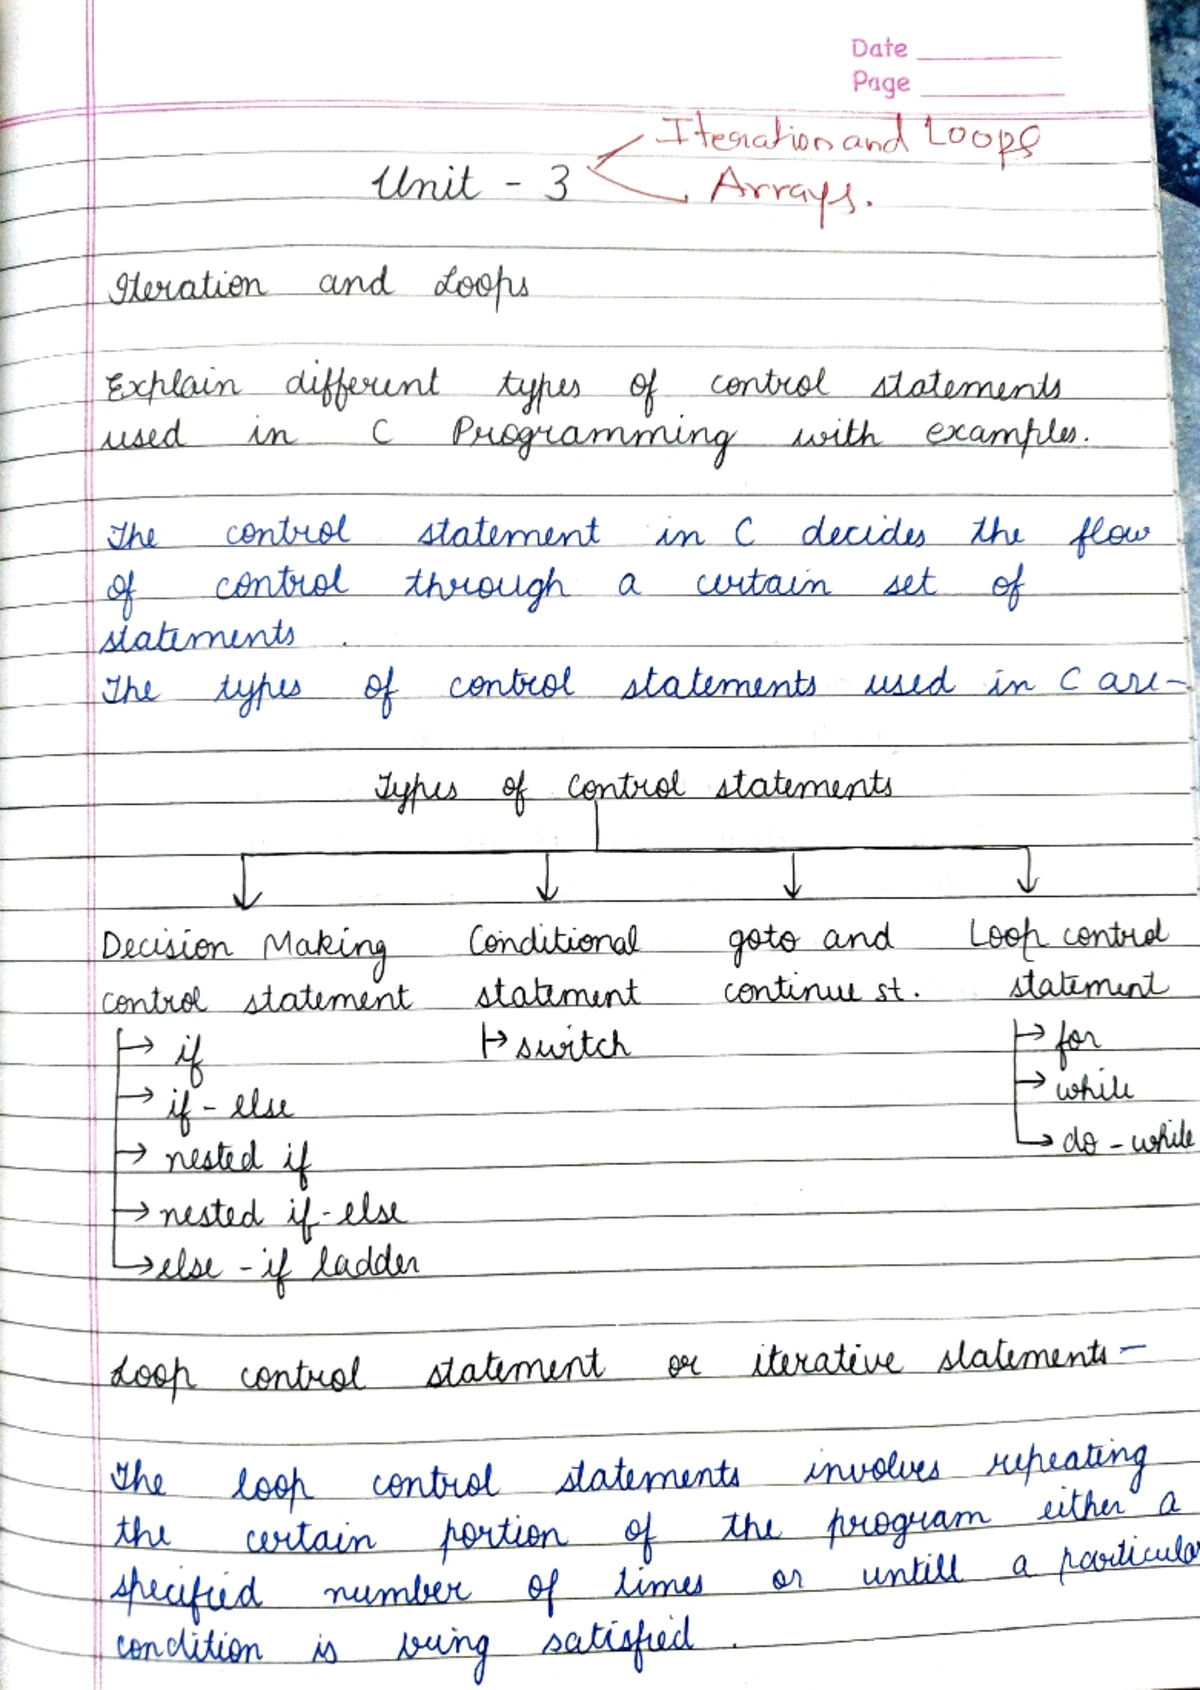 Date
Page
Iteration and Loops
Unit - 3
Arrays.
Iteration and Loops
Explain different types of control statements
used in C Programming with examples.
The control statement in C decides the flow
of control through a certain set of
statements.
The types of control statements used in C are-
Types of control statements
Decision Making Conditional goto and Loop control
control statement statement continue st. statement
if switch for
if - else while
nested if do - while
nested if-else
else - if ladder
Loop control statement or iterative statements -
The loop control statements involves repeating
the certain portion of the program either a
specified number of times or untill a particular
condition is being satisfied.